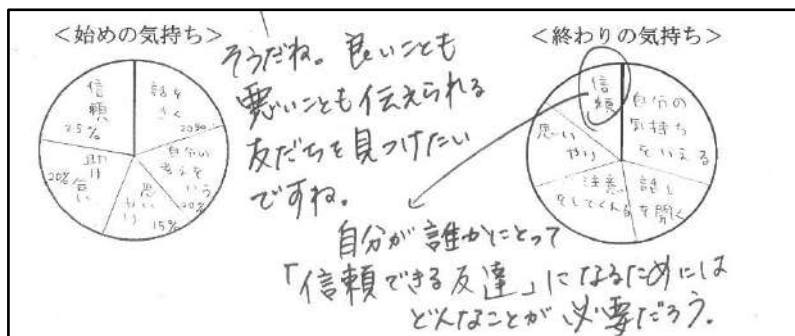 <始めの気持ち>
信頼
25%
話を
きく
20%
自分の
考えを
いう
20%
思い
やり
15%
助け
合い
20%
そうだね。良いことも
悪いことも伝えられる
友だちを見つけたい
ですね。
<終わりの気持ち>
信頼
自分の
気持ち
をいえる
話し
を聞く
注意
をしてくれる
思い
やり
自分が誰かにとって
「信頼できる友達」になるためには
どんなことが必要だろう。